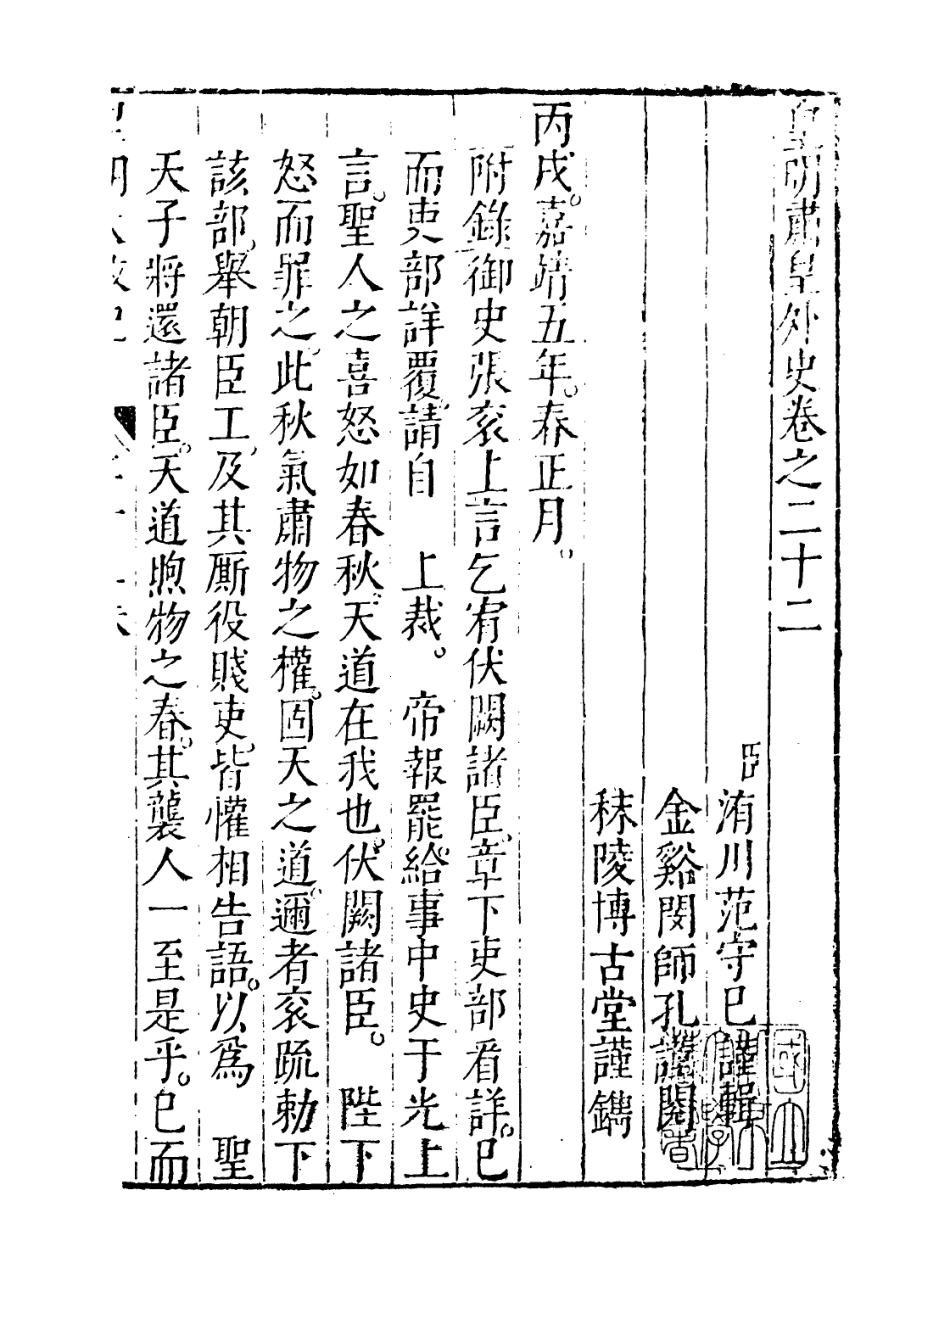 皇明肅皇外史卷之二十二
臣洧川范守己謹輯
金谿閔師孔謹閱
秣陵博古堂謹鐫
丙戌。嘉靖五年。春正月。
附錄御史張袞上言乞宥伏闕諸臣。章下吏部看詳。已
而吏部詳覆。請自　上裁。　帝報罷。給事中史于光上
言。聖人之喜怒如春秋。天道在我也。伏闕諸臣。　陛下
怒而罪之。此秋氣肅物之權。固天之道。邇者袞疏勅下
該部。舉朝臣工。及其厮役賤吏。皆懽相告語。以爲　聖
天子將還諸臣。天道煦物之春。其襲人一至是乎。已而